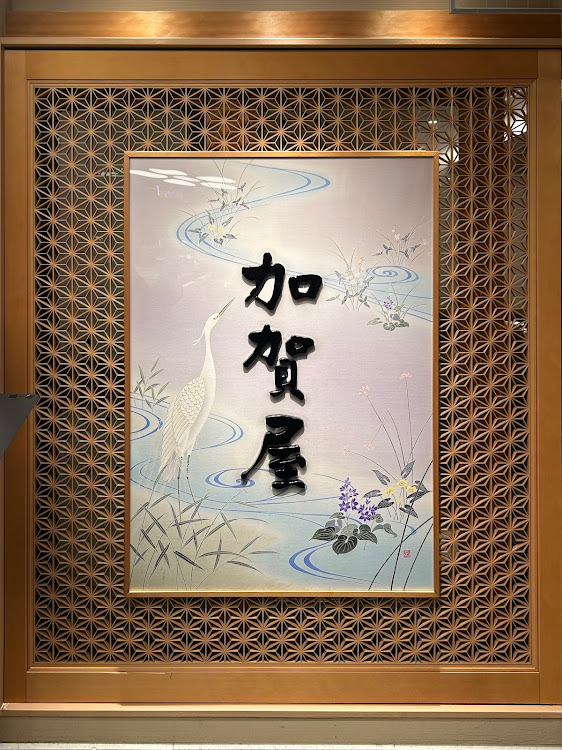 加賀屋